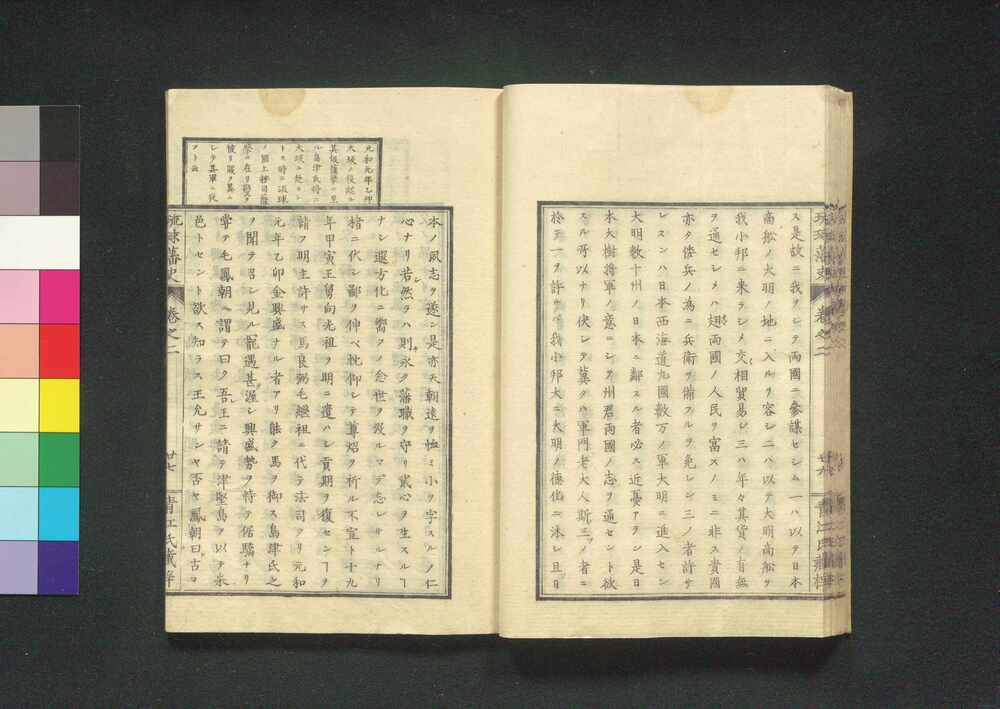 ス是故ニ我ヲシテ兩國ニ參謀セシム一ハ以テ日本
商船ノ大明ノ地ニ入ルヲ容レ二ハ以テ大明商船ヲ
我小邦ニ来ラシメ交相貿易シ三ハ年々其貨ノ有無
ヲ通セシメハ翅兩國ノ人民ヲ富スノミニ非ス貴國
亦タ倭兵ノ為ニ兵衛ヲ備フルヲ免レン三ノ者許サ
レスンハ日本西海道九國數万ノ軍大明ニ進入セン
大明數十州ノ日本ニ鄰スル者必ス近憂アラン是日
本大樹將軍ノ意ニシテ州君兩國ノ志ヲ通セント欲
スル所以ナリ伏シテ冀クハ軍門老大人斯三ノ者ニ
於テ一ヲ許サハ我小邦大ニ大明ノ德化ニ沐シ且日
琉球藩史
卷之二
廿六
青江氏藏梓
元和元年乙卯
大坂ノ役起ル
其報薩摩ニ至
ル島津氏將ニ
大坂ニ赴カン
トス時ニ琉球
ノ國上按司薩
摩ニ在リ
彼リ
レテ其軍ニ從
フト云
本ノ夙志ヲ遂ン是亦天朝遠ヲ恤ミ小ヲ字スルノ仁
心ナリ若然ラハ則永ク藩職ヲ守リ貳心ヲ生スルヿ
ナシ遐方化ニ嚮クノ念世ヲ歿ルマデ志レサルナリ
楮ニ代シ鄙ヲ伸ベ牝仰シテ尊炤ヲ祈ル不宣ト十九
年甲寅王舅向光祖ヲ明ニ遣ハシ貢期ヲ復センヿヲ
請フ明主許サス馬良弼毛繼祖ニ代テ法司タリ元和
元年乙卯金興盛ナル者アリ能ク馬ヲ御ス島津氏之
ヲ聞テ召シ見ル寵遇甚渥シ興盛勢ヲ恃テ倨驕ナリ
嘗テ毛鳳朝ヘ謂テ曰ク吾王ニ請テ津堅島ヲ以テ采
邑トセント欲ス知ラス王允サンヤ否ヤ鳳朝曰古ヨ
琉球藩史
卷之二
廿七
青江氏藏梓